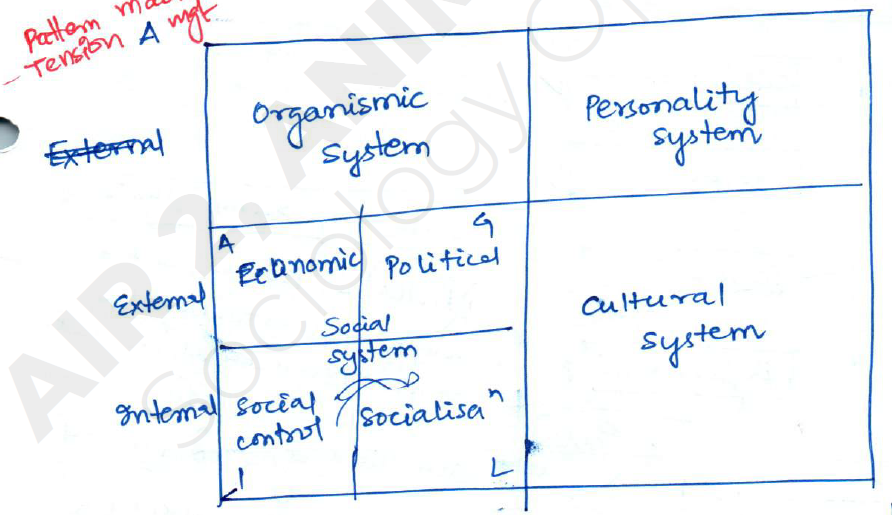 Pattern
Tension A mgt
External
Organismic
System
Personality
System
A
G
External
Economic
Political
Social
system
Cultural
System
Internal
Social
control
Socialisaⁿ
I
L
AIR 2, ANI
Sociology Op